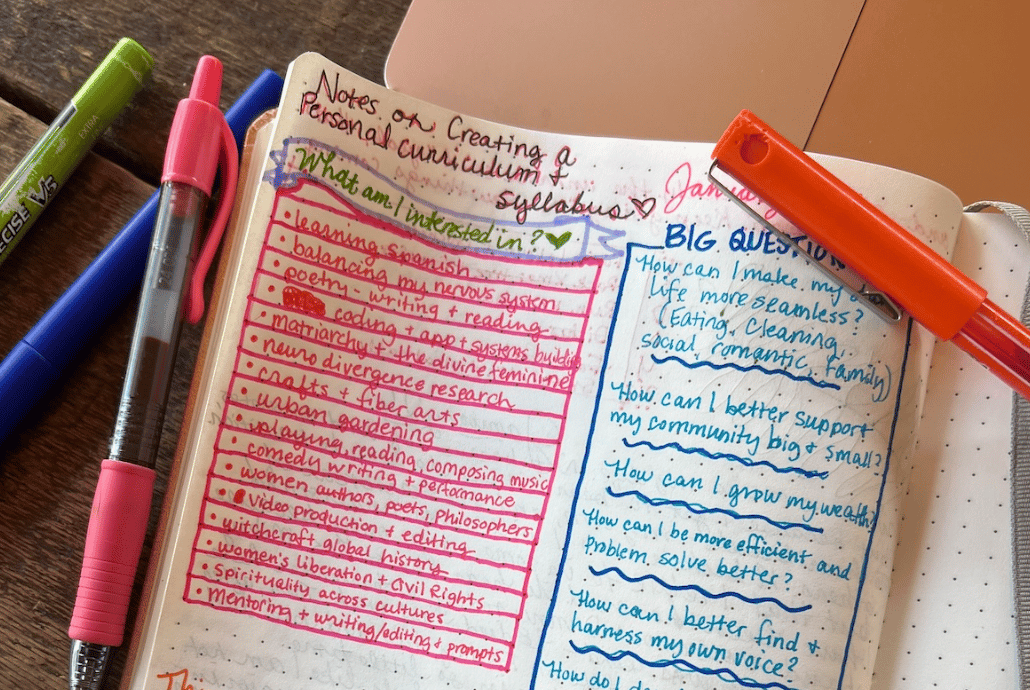 Notes on Creating a
Personal curriculum +
Syllabus
What am I interested in?
• learning Spanish
• balancing my nervous system
• poetry - writing + reading
• coding + app + systems building
• matriarchy + the divine feminine
• neuro divergence research
• crafts + fiber arts
• urban gardening
• playing, reading, composing music
• comedy writing + performance
• women authors, poets, philosophers
• video production + editing
• witchcraft global history
• women's liberation + Civil Rights
• spirituality across cultures
• mentoring + writing/editing + prompts
BIG QUESTION
How can I make my
life more seamless?
(Eating, Cleaning,
social, romantic, family)
How can I better support
my community big + small?
How can I grow my wealth?
How can I be more efficient and
problem solve better?
How can I better find +
harness my own voice?
How do I
PRECISE V5
EXTRA